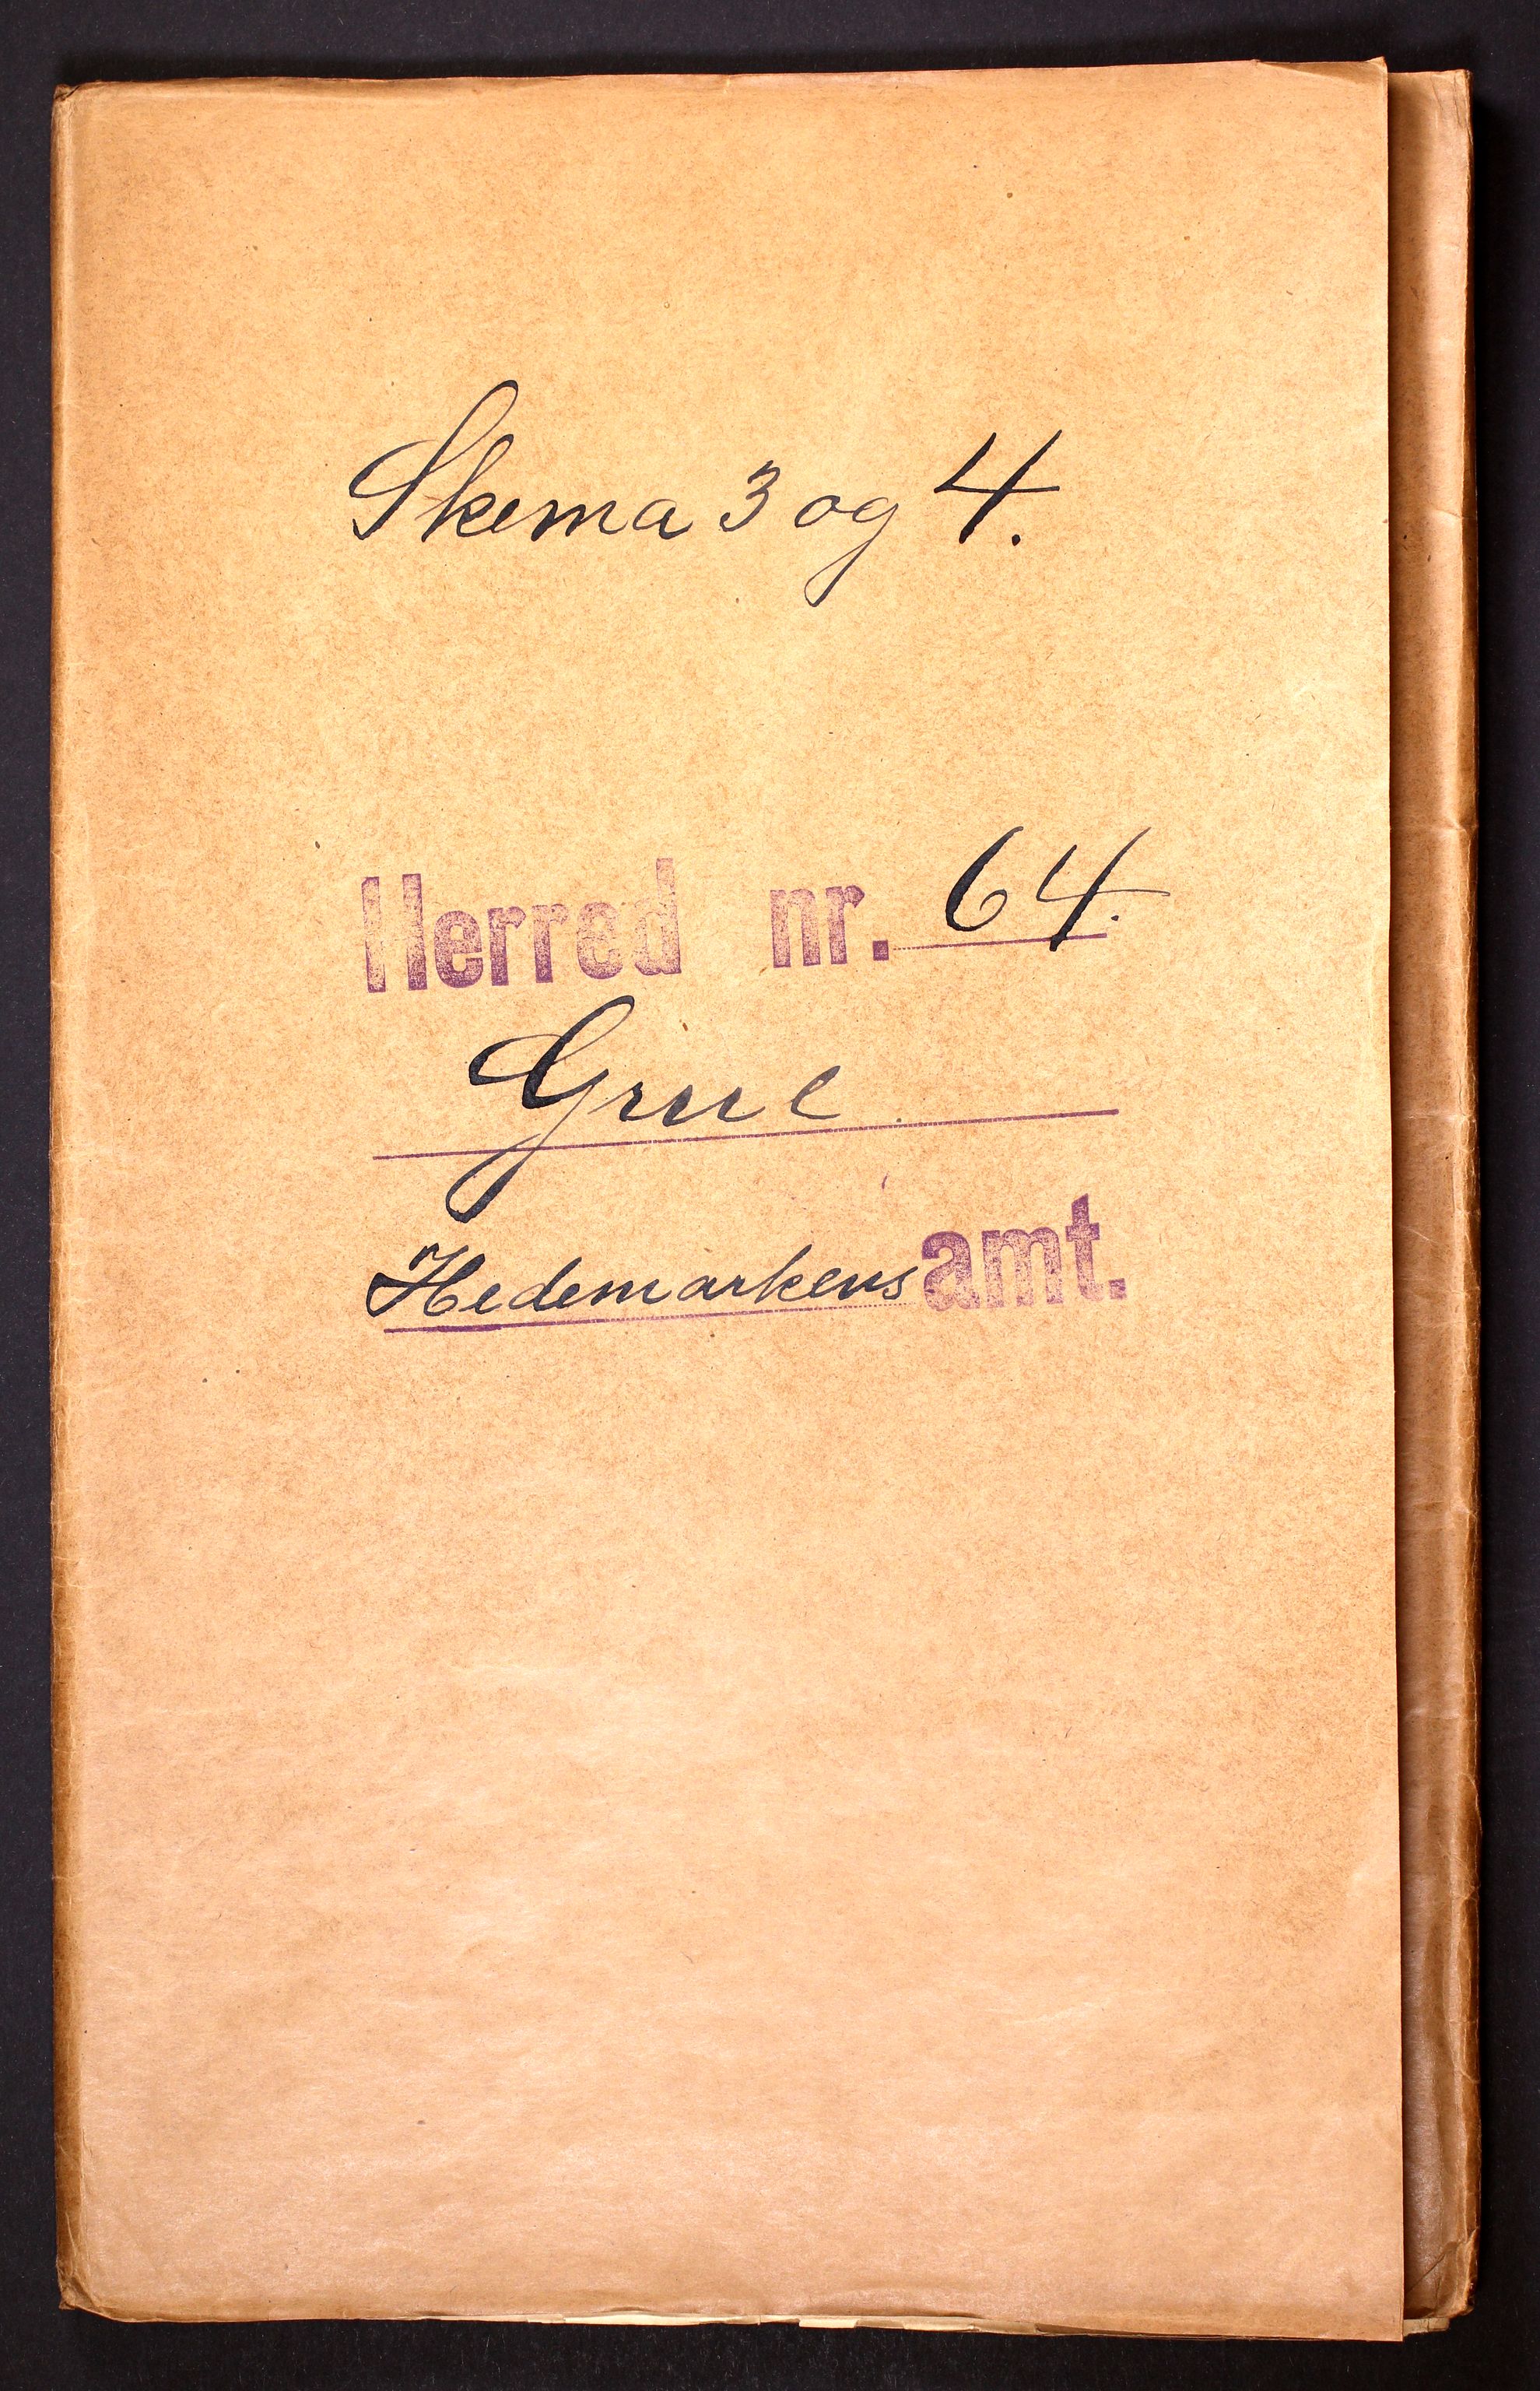 Skema 3 og 4.
Herred nr. 64.
Grue
Hedemarkens amt.